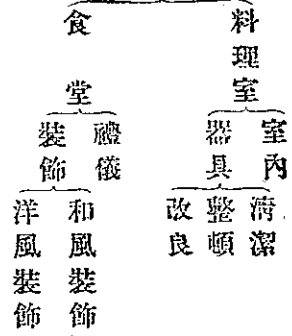 料理室
室內
器具
淸潔
整頓
改良
食堂
禮儀
裝飾
和風裝飾
洋風裝飾